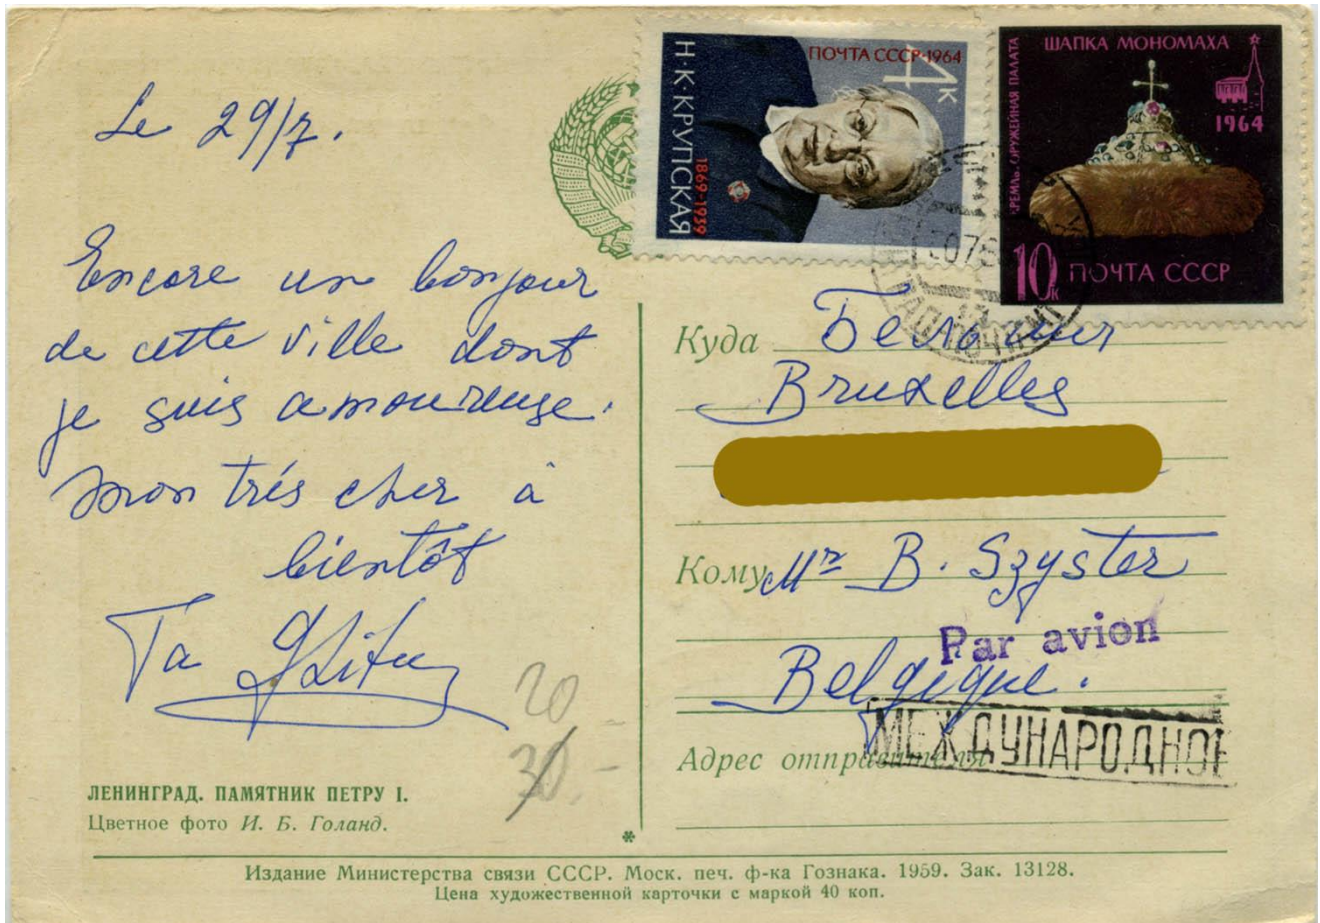 Le 29/7.
Encore un bonjour
de cette ville dont
je suis amoureuse.
Mon trés cher à
bientôt
Ta
20 -
30. -
ЛЕНИНГРАД. ПАМЯТНИК ПЕТРУ I.
Цветное фото И. Б. Голанд.
ПОЧТА СССР·1964
4к
Н·К·КРУПСКАЯ
1869-1939
ШАПКА МОНОМАХА
КРЕМЛЬ. ОРУЖЕЙНАЯ ПАЛАТА
1964
10к ПОЧТА СССР
Куда
Bruxelles
Кому Mr B. Szyster
Par avion
Belgique.
МЕЖДУНАРОДНОЕ
Адрес отправителя
*
Издание Министерства связи СССР. Моск. печ. ф-ка Гознака. 1959. Зак. 13128.
Цена художественной карточки с маркой 40 коп.